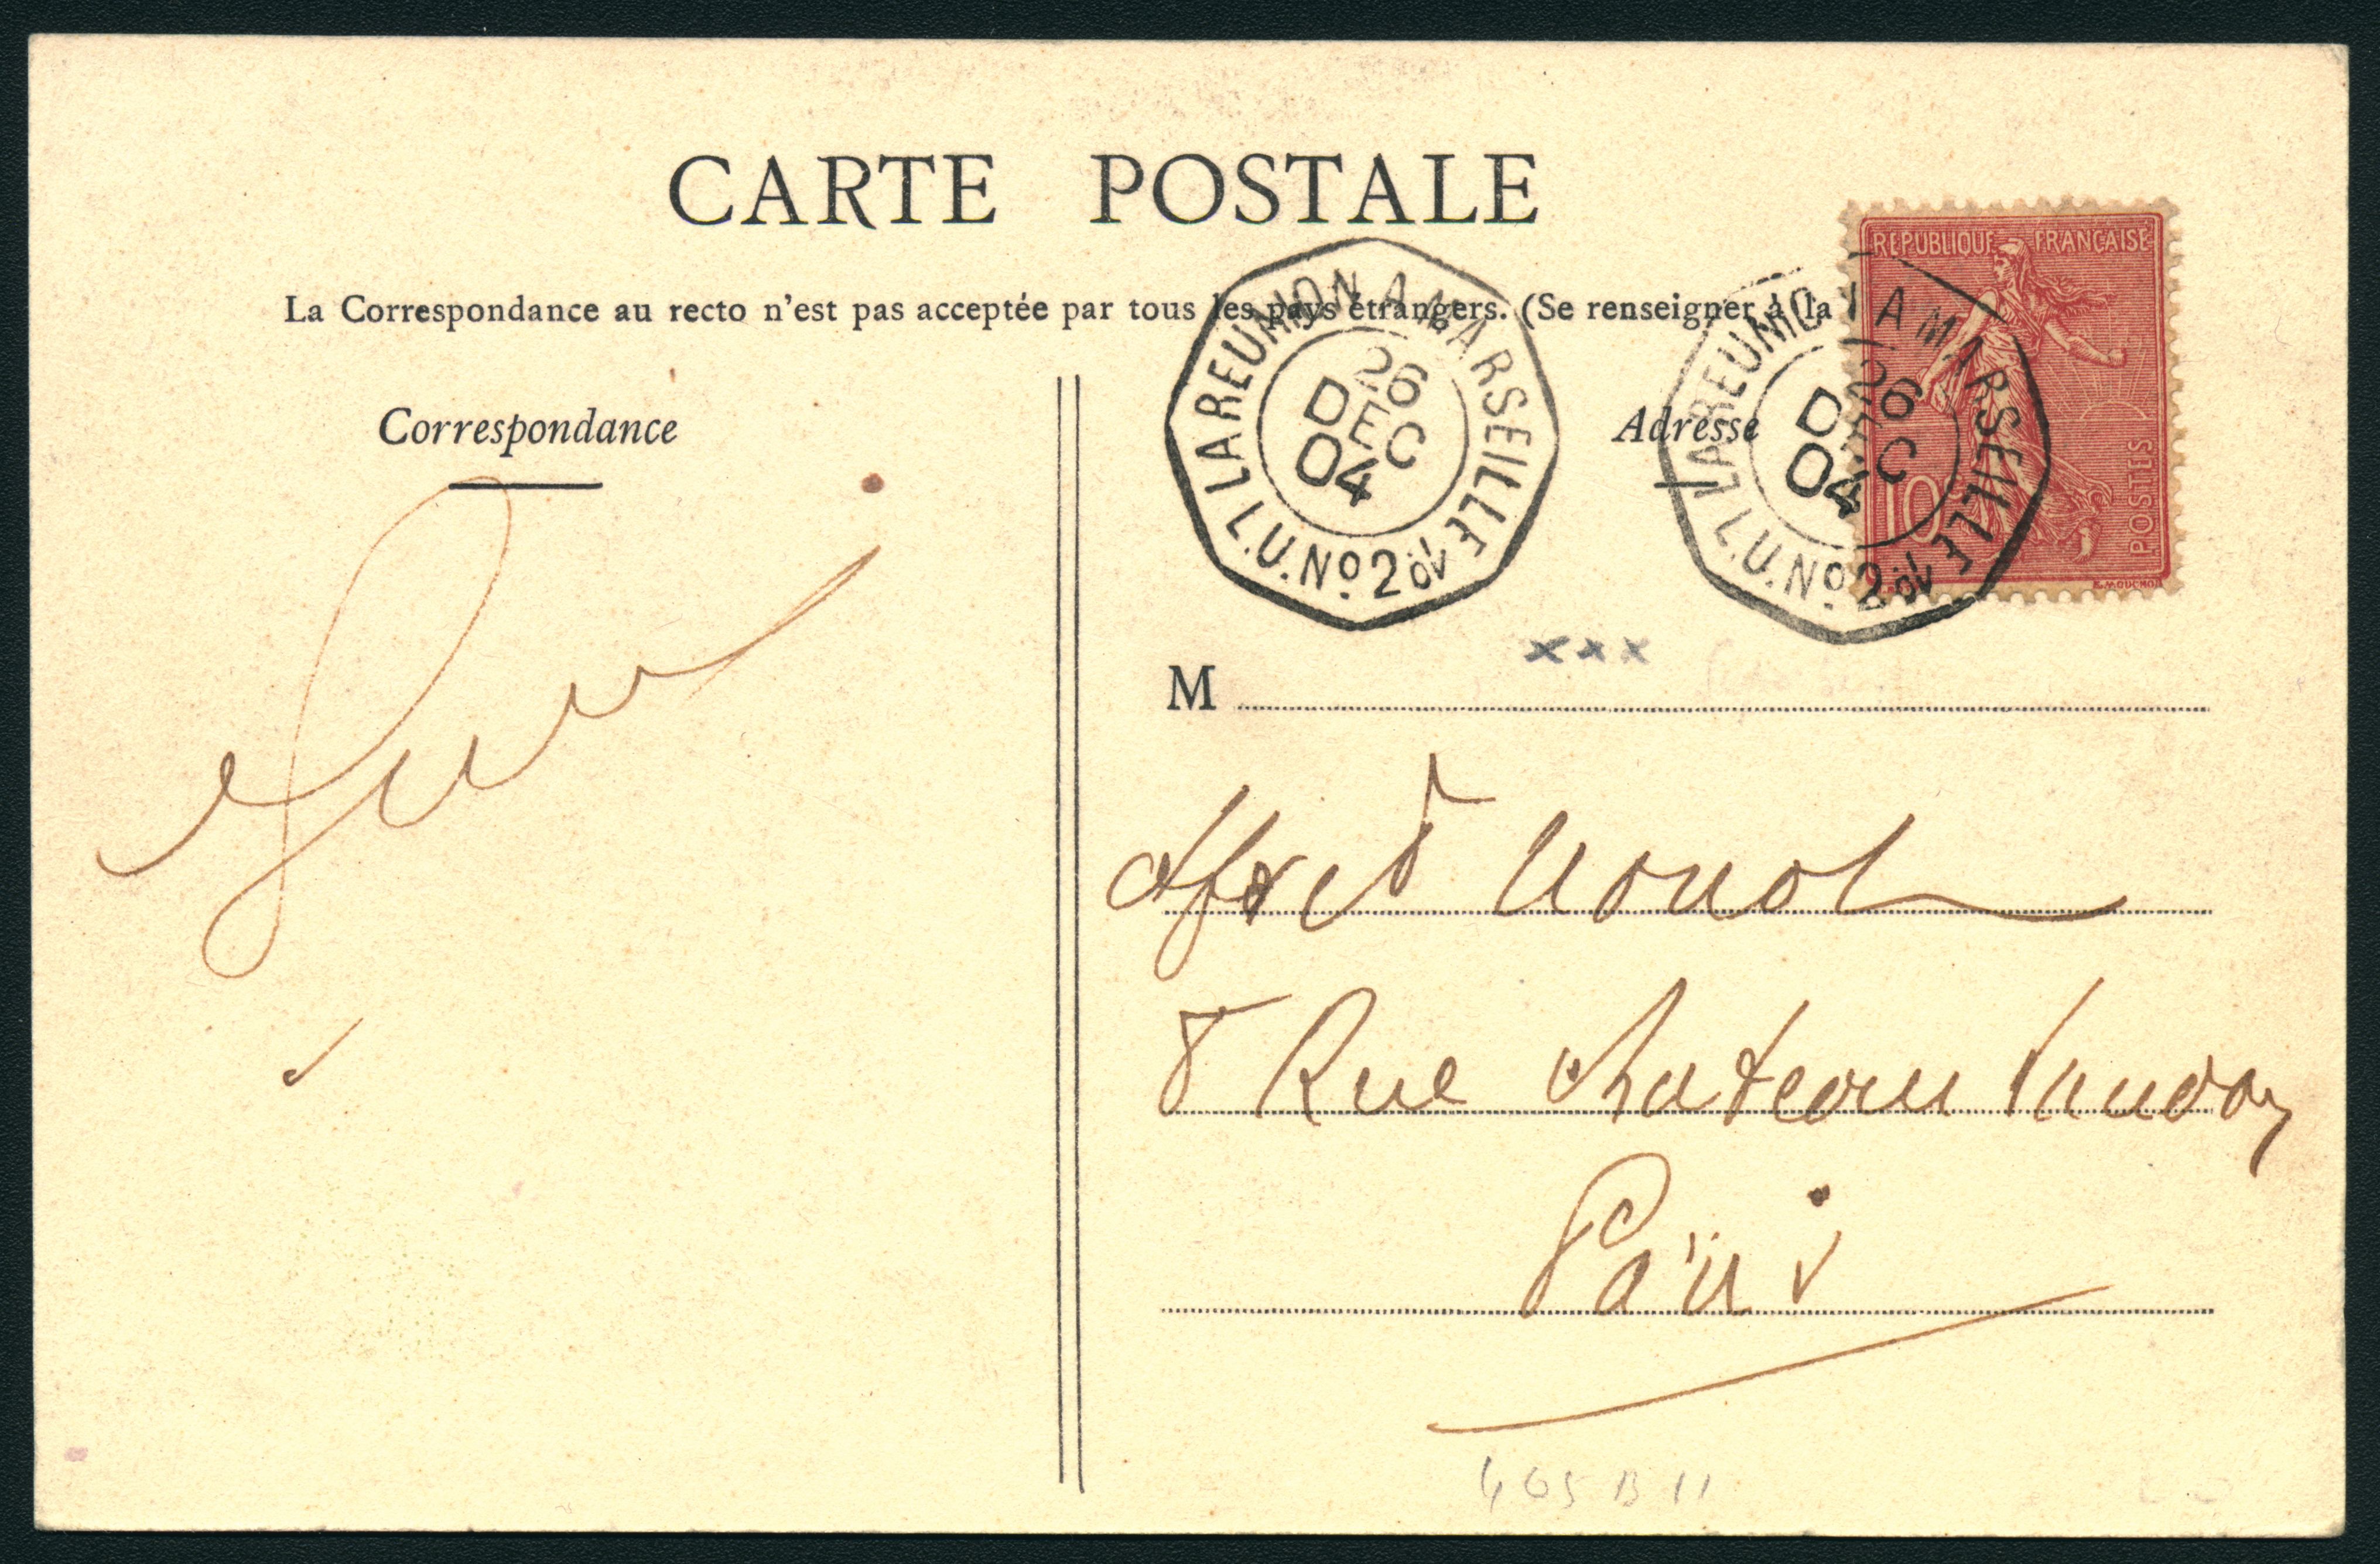 CARTE POSTALE
La Correspondance au recto n'est pas acceptée par tous les pays étrangers. (Se renseigner à la
Correspondance
Adresse
REPUBLIQUE FRANÇAISE
10
POSTES
E. MOUCHON
LA REUNION A MARSEILLE
L.U. No 2
26
DEC
04
LA REUNION A MARSEILLE
L.U. No 2
26
DEC
04
xxx
M
Alfred
8 Rue Chateau Landon
Paris
465 B 11